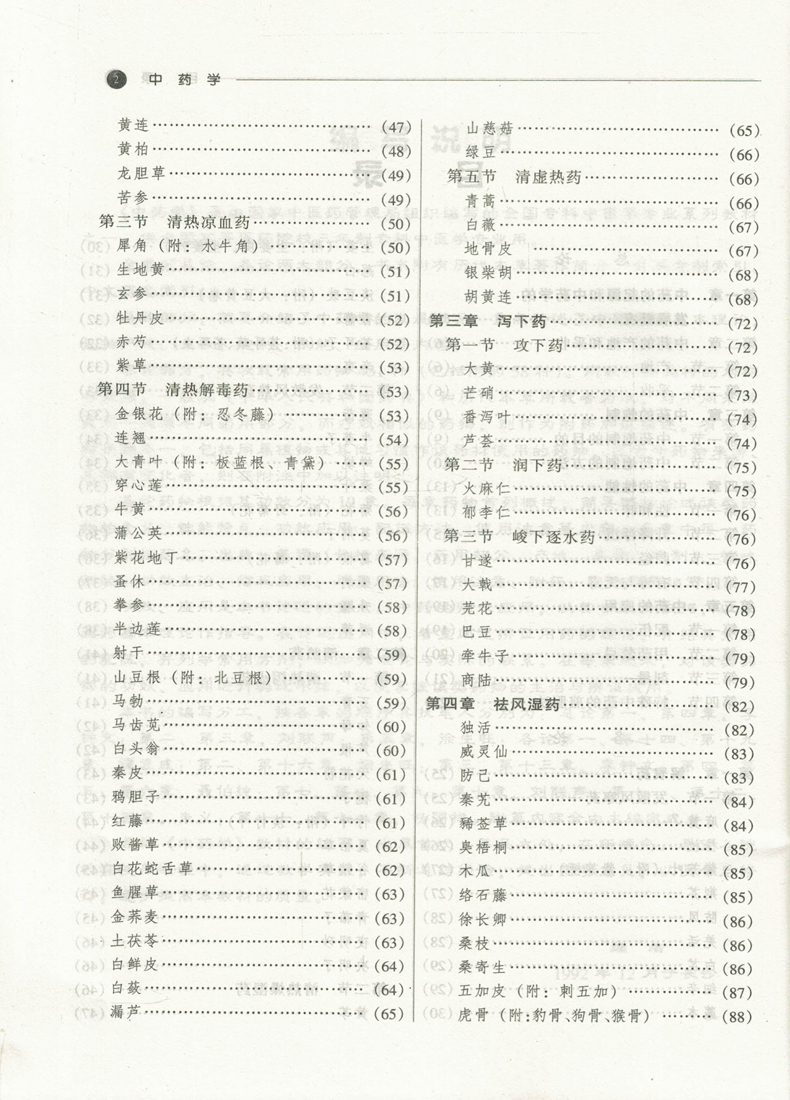 2 中药学
黄连……………………………(47)
黄柏……………………………(48)
龙胆草…………………………(49)
苦参……………………………(49)
第三节 清热凉血药……………(50)
犀角（附：水牛角）……………(50)
生地黄…………………………(51)
玄参……………………………(51)
牡丹皮…………………………(52)
赤芍……………………………(52)
紫草……………………………(53)
第四节 清热解毒药……………(53)
金银花（附：忍冬藤）…………(53)
连翘……………………………(54)
大青叶（附：板蓝根、青黛）……(55)
穿心莲…………………………(55)
牛黄……………………………(56)
蒲公英…………………………(56)
紫花地丁………………………(57)
蚤休……………………………(57)
拳参……………………………(58)
半边莲…………………………(58)
射干……………………………(59)
山豆根（附：北豆根）…………(59)
马勃……………………………(59)
马齿苋…………………………(60)
白头翁…………………………(60)
秦皮……………………………(61)
鸦胆子…………………………(61)
红藤……………………………(61)
败酱草…………………………(62)
白花蛇舌草……………………(62)
鱼腥草…………………………(63)
金荞麦…………………………(63)
土茯苓…………………………(63)
白鲜皮…………………………(64)
白蔹……………………………(64)
漏芦……………………………(65)
山慈菇…………………………(65)
绿豆……………………………(66)
第五节 清虚热药………………(66)
青蒿……………………………(66)
白薇……………………………(67)
地骨皮…………………………(67)
银柴胡…………………………(68)
胡黄连…………………………(68)
第三章 泻下药…………………(72)
第一节 攻下药…………………(72)
大黄……………………………(72)
芒硝……………………………(73)
番泻叶…………………………(74)
芦荟……………………………(74)
第二节 润下药…………………(75)
火麻仁…………………………(75)
郁李仁…………………………(76)
第三节 峻下逐水药……………(76)
甘遂……………………………(76)
大戟……………………………(77)
芫花……………………………(78)
巴豆……………………………(78)
牵牛子…………………………(79)
商陆……………………………(79)
第四章 祛风湿药………………(82)
独活……………………………(82)
威灵仙…………………………(83)
防己……………………………(83)
秦艽……………………………(84)
豨莶草…………………………(84)
臭梧桐…………………………(85)
木瓜……………………………(85)
络石藤…………………………(85)
徐长卿…………………………(86)
桑枝……………………………(86)
桑寄生…………………………(86)
五加皮（附：刺五加）…………(87)
虎骨（附:豹骨、狗骨、猴骨）………(88)